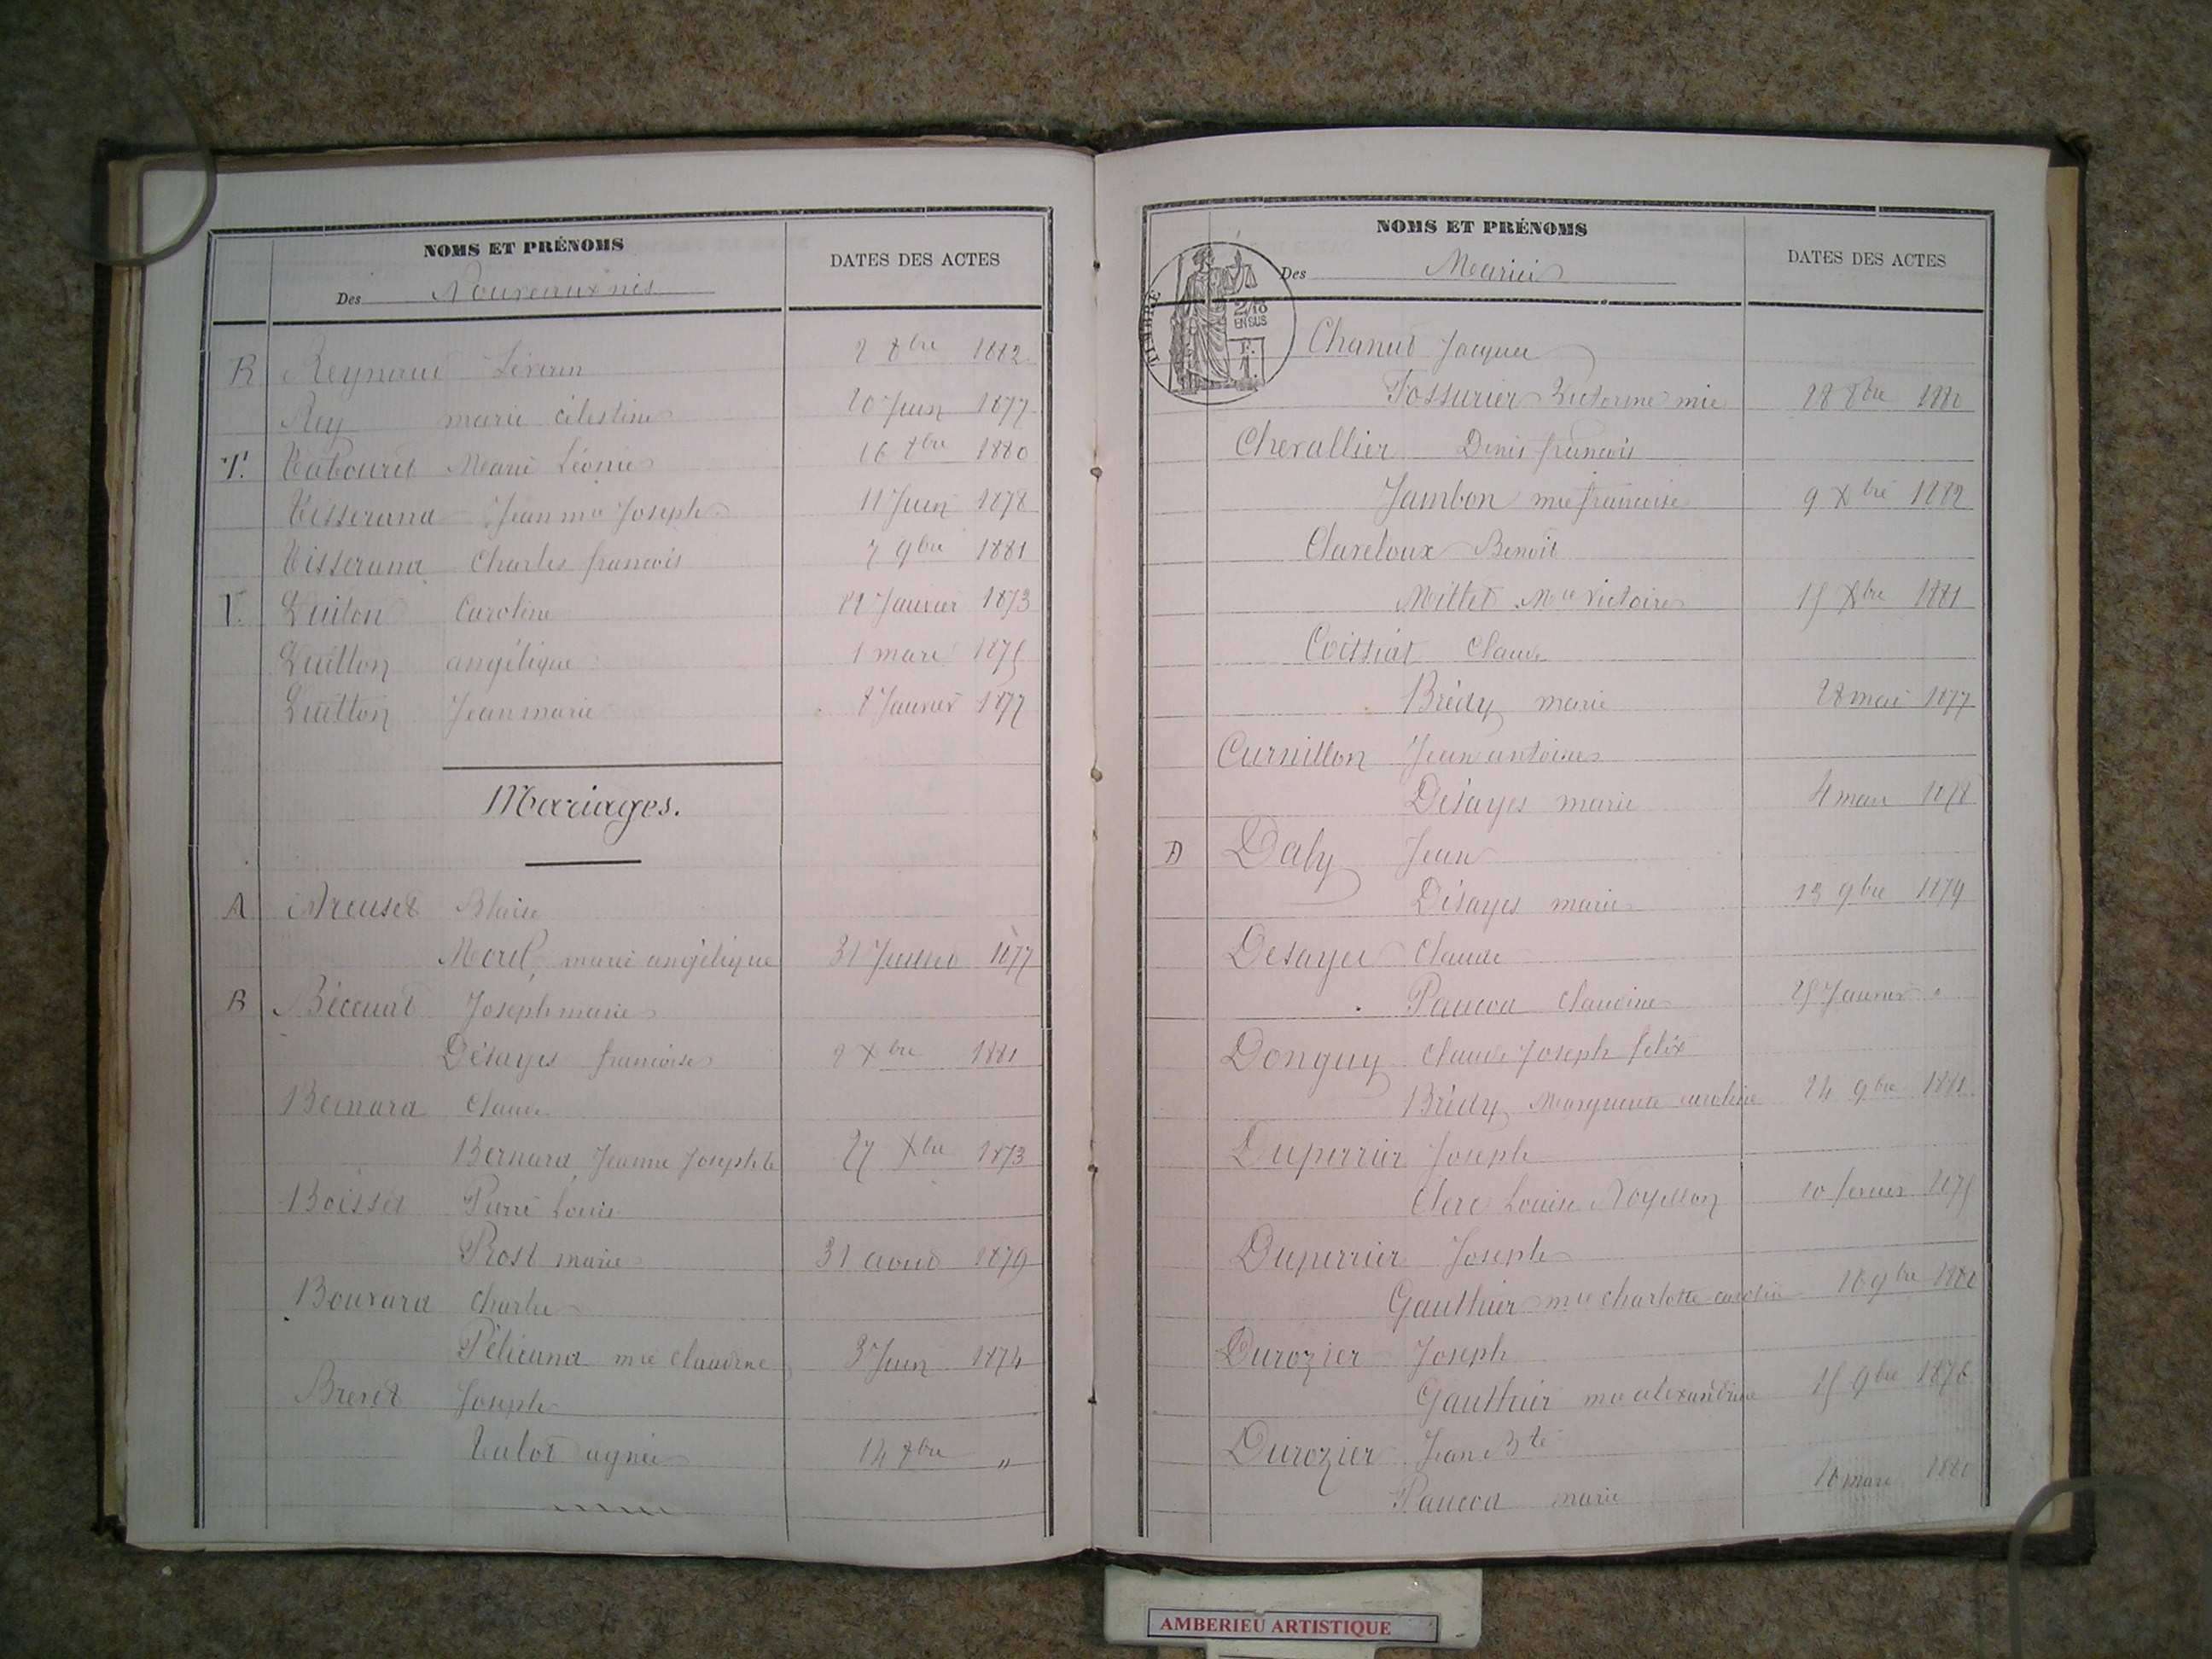 NOMS ET PRÉNOMS
DATES DES ACTES
Des Nouveaux nés
R Reynaud Séverin 2 Xbre 1882
Rey marie célestine 20 Juin 1877
T. Tabouret Marie Léonie 16 Xbre 1880
Tisserand Jean me Joseph 11 Juin 1878
Tisserand Charles françois 7 9bre 1881
V. Vuiton Caroline Janvier 1873
Vuitton angélique 1 mars 1875
Vuitton Jean marie 8 Janvier 1877
Mariages.
A Blaise
Morel marie angélique 31 Juillet 1877
B Bécouat Joseph marie
Désayes françoise 9 Xbre 1881
Bernard Claude
Bernard Jeanne Josephte 27 Xbre 1873
Boisset Pierre Louis
Prost marie 31 août 1879
Bouvard Charles
Pélicand mie Claudine 3 Juin 1874
Brevet Joseph
Talot agnès 14 Xbre "
NOMS ET PRÉNOMS
DATES DES ACTES
Des Mariés
TIMBRE
2/10
EN SUS
F.
1.
Chanut Jacques
Victorine mie 28 8bre 1880
Chevallier Denis françois
Jambon mie françoise 9 Xbre 1882
Claveloux Benoit
Millet Mie Victoire 15 Xbre 1881
Coissiat Claude
Brédy marie 28 mai 1877
Curnillon Jean antoine
Désayes marie 4 mars 1878
D Daly Jean
Désayes marie 13 9bre 1879
Desayes Claude
Paucod Claudine 25 Janvier "
Donguy Claude Joseph felix
Brédy Marguerite caroline 24 9bre 1881
Duperrier Joseph
Clerc Louise 10 fevrier 1875
Duperrier Joseph
Gauthier mie charlotte caroline 9bre
Durozier Joseph
Gauthier mie alexandrine 15 9bre 1876
Durozier Jean Bte
Paucod marie mars 1880
AMBERIEU ARTISTIQUE